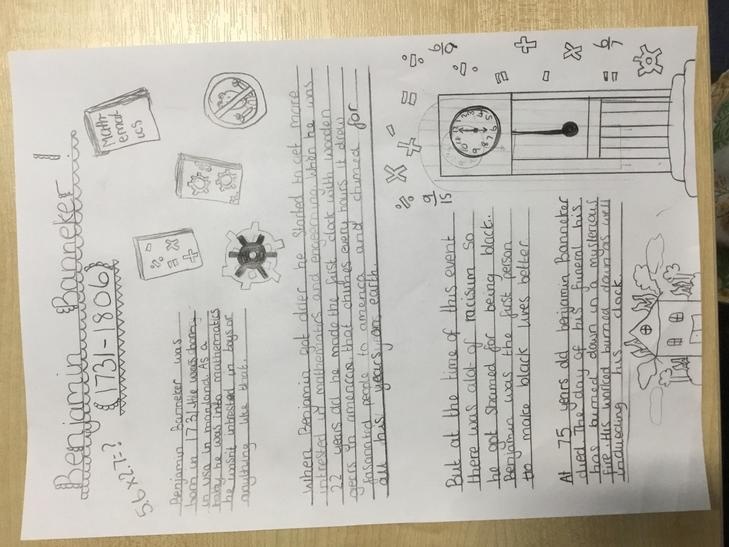 Benjamin Banneker!
(1731-1806)
56x27=?
Mathematics
Benjamin Banneker was
born in 1731. He was born
in usa in mariland. As a
baby he was into mathematics
he wasn't intrested in toys or
anything like that.
When Benjamin got older he started to get more
intrested in mathematics and engeenring. when he was
22 years old he made the first clock with wooden
gears in american that chimes every hours it draw
fasanated people to america and chimed for
all his years on earth.
But at the time of this event
there was alot of racisum so
he got shamed for being black.
Benjamin was the first person
to make black lives better
At 75 years old benjamin Banneker
died. The day of his funeral his
hos burned down in a mysterious
fire. His worked burned down as well
including his clock.
6/9
9/15
6/7